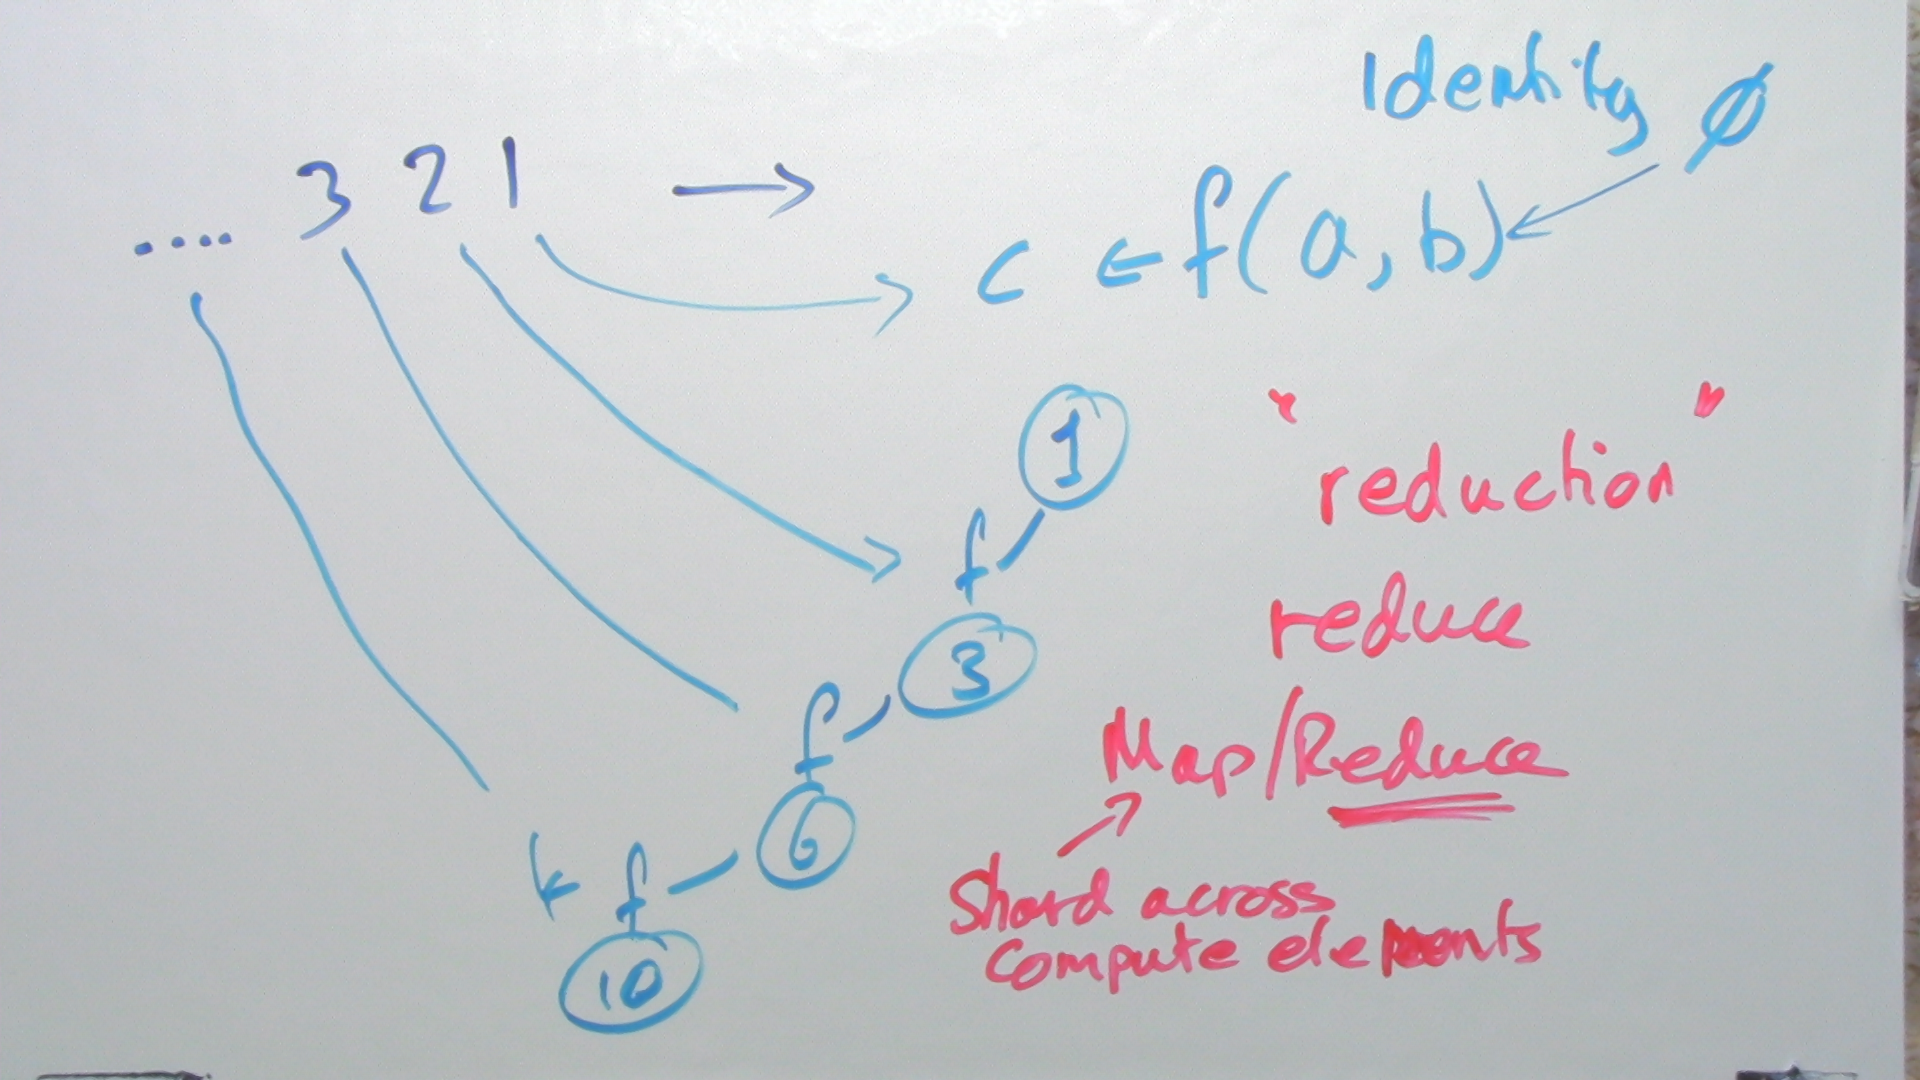 Identity ∅
.... 3 2 1 →
c ← f(a,b)
1
" reduction "
f
reduce
3
f
Map/Reduce
6
f
Shard across
compute elements
10